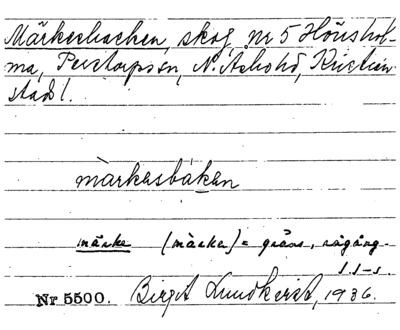 Märkesbacken, skog, nr 5 Hönshol-
ma, Perstorps sn, N. Åsbohd, Kristian-
stads l.
märkasbákan
märke (màrka) = gräns, rågång.
Nr 5500. Birgit Lundkvist, 1936.